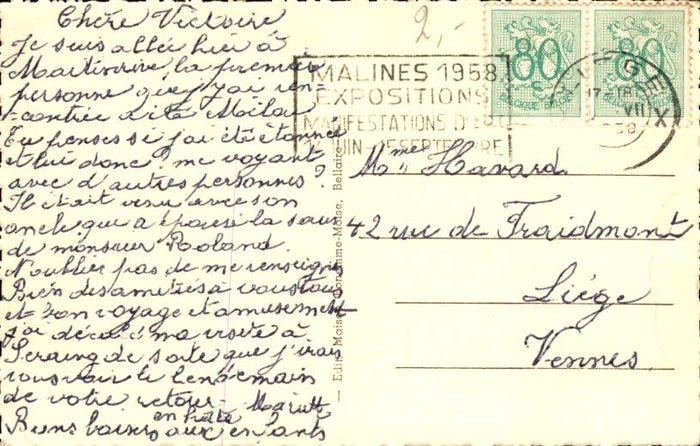 Chère Victoire
Je suis allée hier à
la première
personne que j'ai ren-
contrée a été
Tu penses si j'ai été étonnée
et lui donc? me voyant
avec d'autres personnes?
Il était venu avec son
oncle qui a épousé la sœur
de monsieur Roland.
N'oublier pas de me renseigner
Bien des amitiés à vous tous
et bon voyage et amusement
j'ai décalé ma visite à
Seraing de sorte que j'irais
vous voir le lendemain
de votre retour. Mariette
en hâte
Bons baisers aux enfants
2,-
80
80
BELGIQUE BELGIE
MALINES 1958
EXPOSITIONS
MANIFESTATIONS D'ART
JUIN SEPTEMBRE
17-18
VII
Edit. Maison Bellaire
Mme Havard
42 rue de Fraidmont
Liége
Vennes.